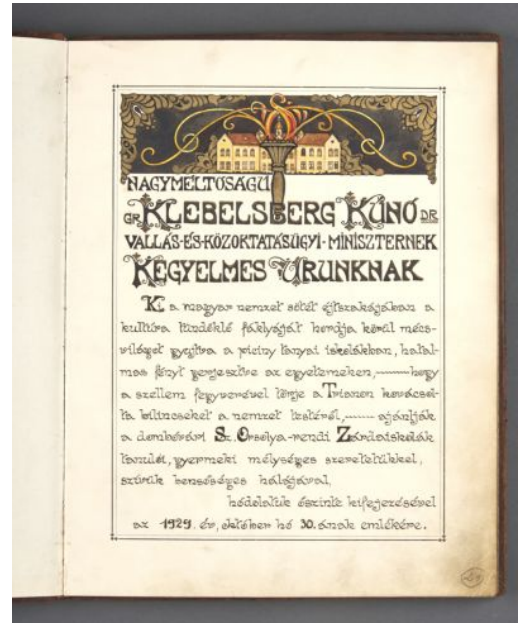 NAGYMÉLTÓSÁGU
GR KLEBELSBERG KUNÓ DR.
VALLÁS-ÉS-KÖZOKTATÁSÜGYI-MINISZTERNEK
KEGYELMES URUNKNAK
Ki a magyar nemzet sötét éjtszakájában a
kultúra tündéklő fáklyáját hordja körül mécs-
világot gyujtva a piciny tanyai iskolákban, hatal-
mas fényt gerjesztve az egyetemeken, hogy
a szellem fegyverével törje a Trianon kovácsol-
ta bilincseket a nemzet testéről, ajánlják
a dombóvári Sz. Orsolya-rendi Zárdaiskolák
tanulói, gyermeki mélységes szeretetükkel,
szívük bensőséges hálájával,
hódolatuk őszinte kifejezésével
az 1929. év, október hó 30.ának emlékére.